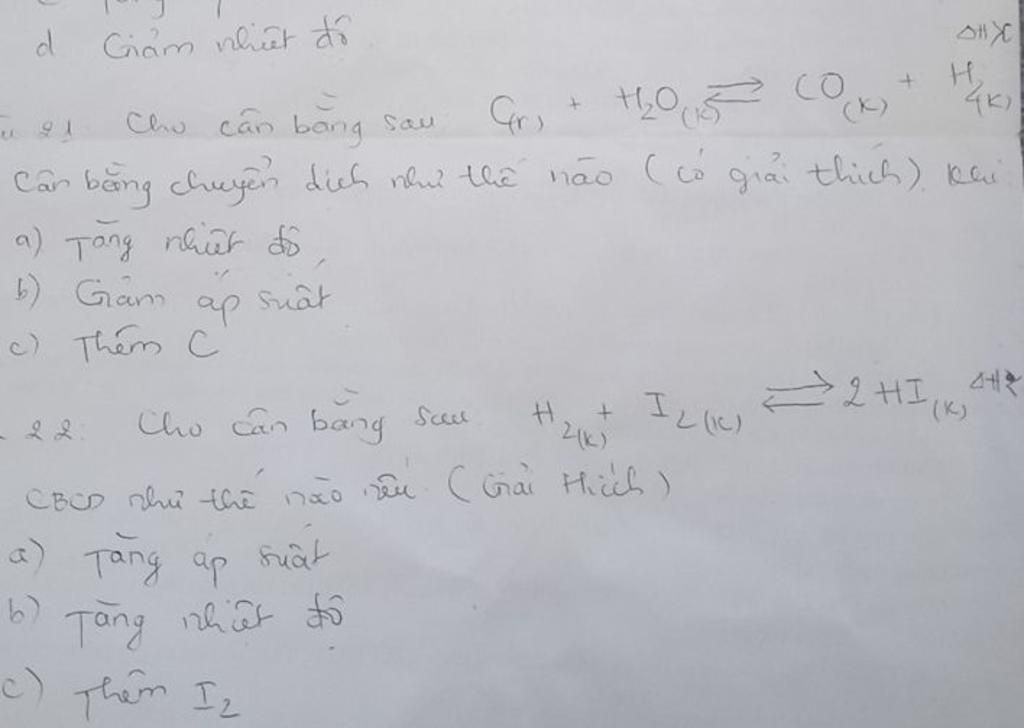 d Giảm nhiệt độ
21. Cho cân bằng sau C(r) + H2O(K) ⇌ CO(K) + H2(K) ΔH
Cân bằng chuyển dịch như thế nào (có giải thích). khi
a) Tăng nhiệt độ
b) Giảm áp suất
c) Thêm C
22. Cho cân bằng sau H2(K) + I2(K) ⇌ 2HI(K) ΔH
CBCD như thế nào nếu (Giải thích)
a) Tăng áp suất
b) Tăng nhiệt độ
c) Thêm I2